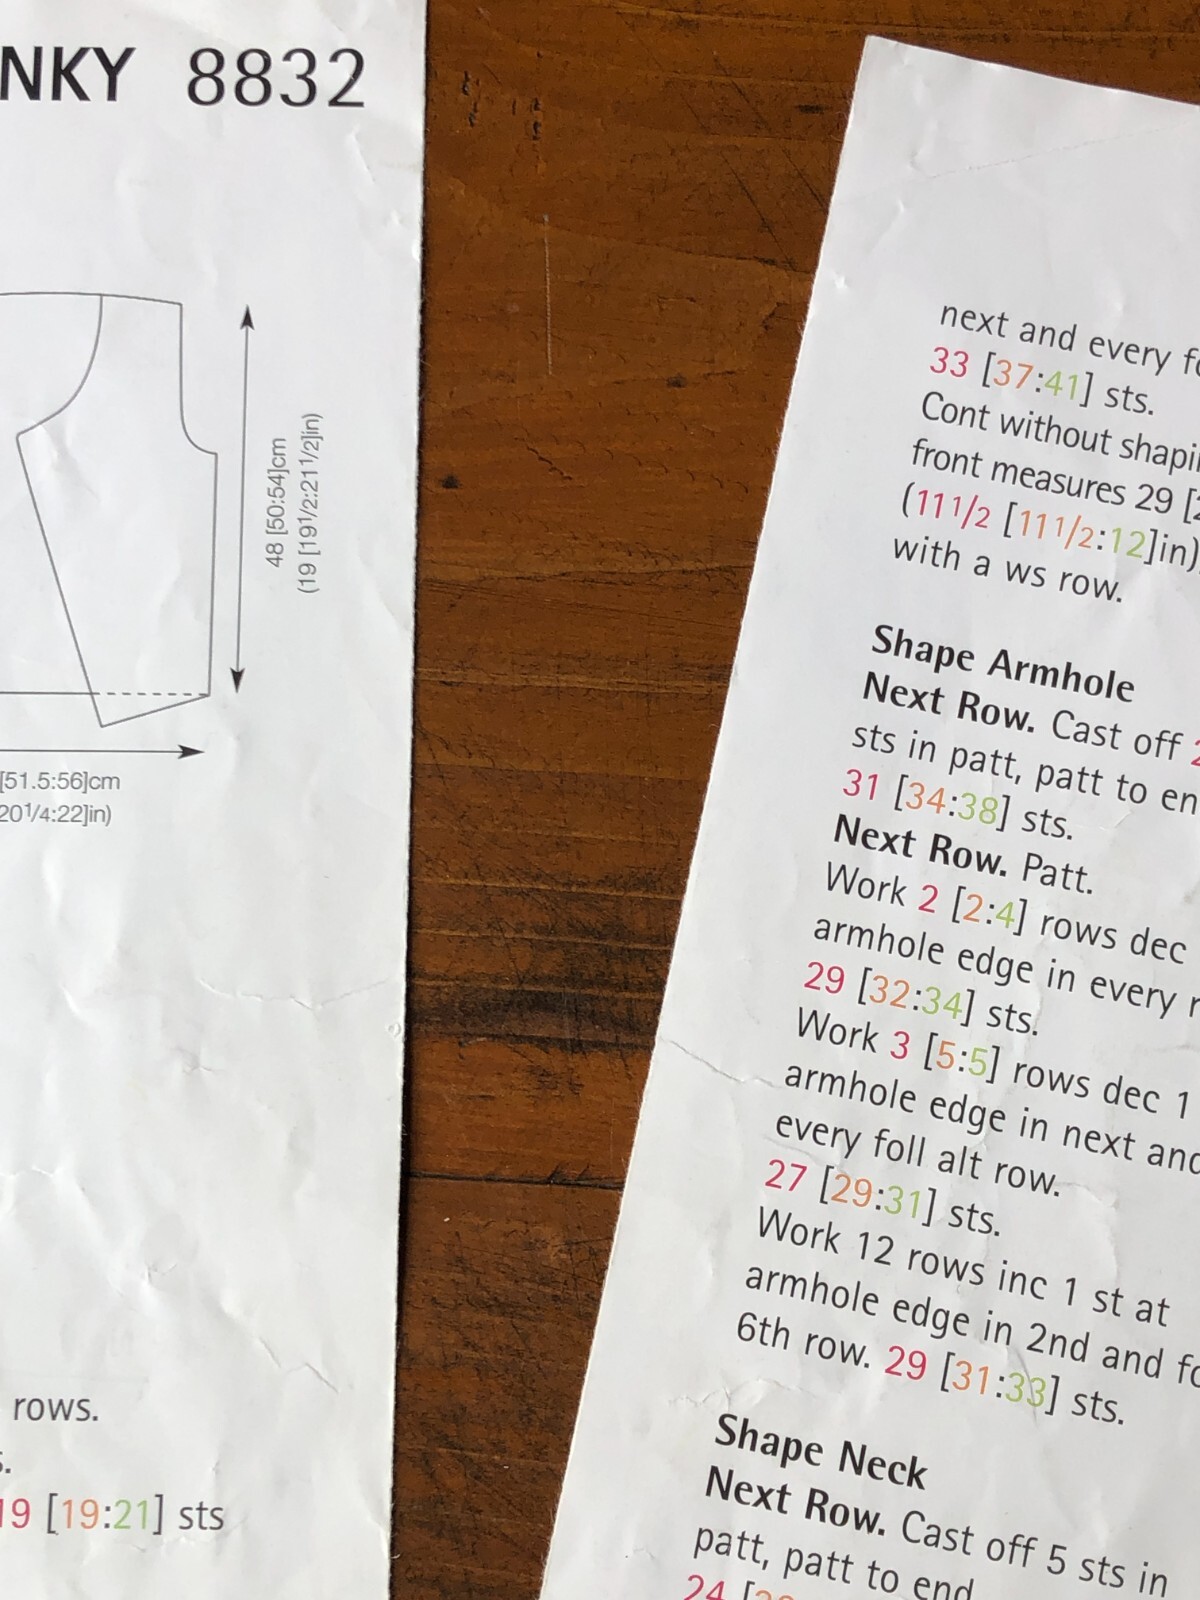 NKY 8832
48 [50:54]cm
(19 [19 1/2:21 1/2]in)
[51.5:56]cm
20 1/4:22]in)
rows.
19 [19:21] sts
next and every
33 [37:41] sts.
Cont without
front measures 29
(11 1/2 [11 1/2:12]in)
with a ws row.
Shape Armhole
Next Row. Cast off
sts in patt, patt to
31 [34:38] sts.
Next Row. Patt.
Work 2 [2:4] rows dec
armhole edge in every
29 [32:34] sts.
Work 3 [5:5] rows dec 1
armhole edge in next
every foll alt row.
27 [29:31] sts.
Work 12 rows inc 1 st at
armhole edge in 2nd and
6th row. 29 [31:33] sts.
Shape Neck
Next Row. Cast off 5 sts in
patt, patt to end
24